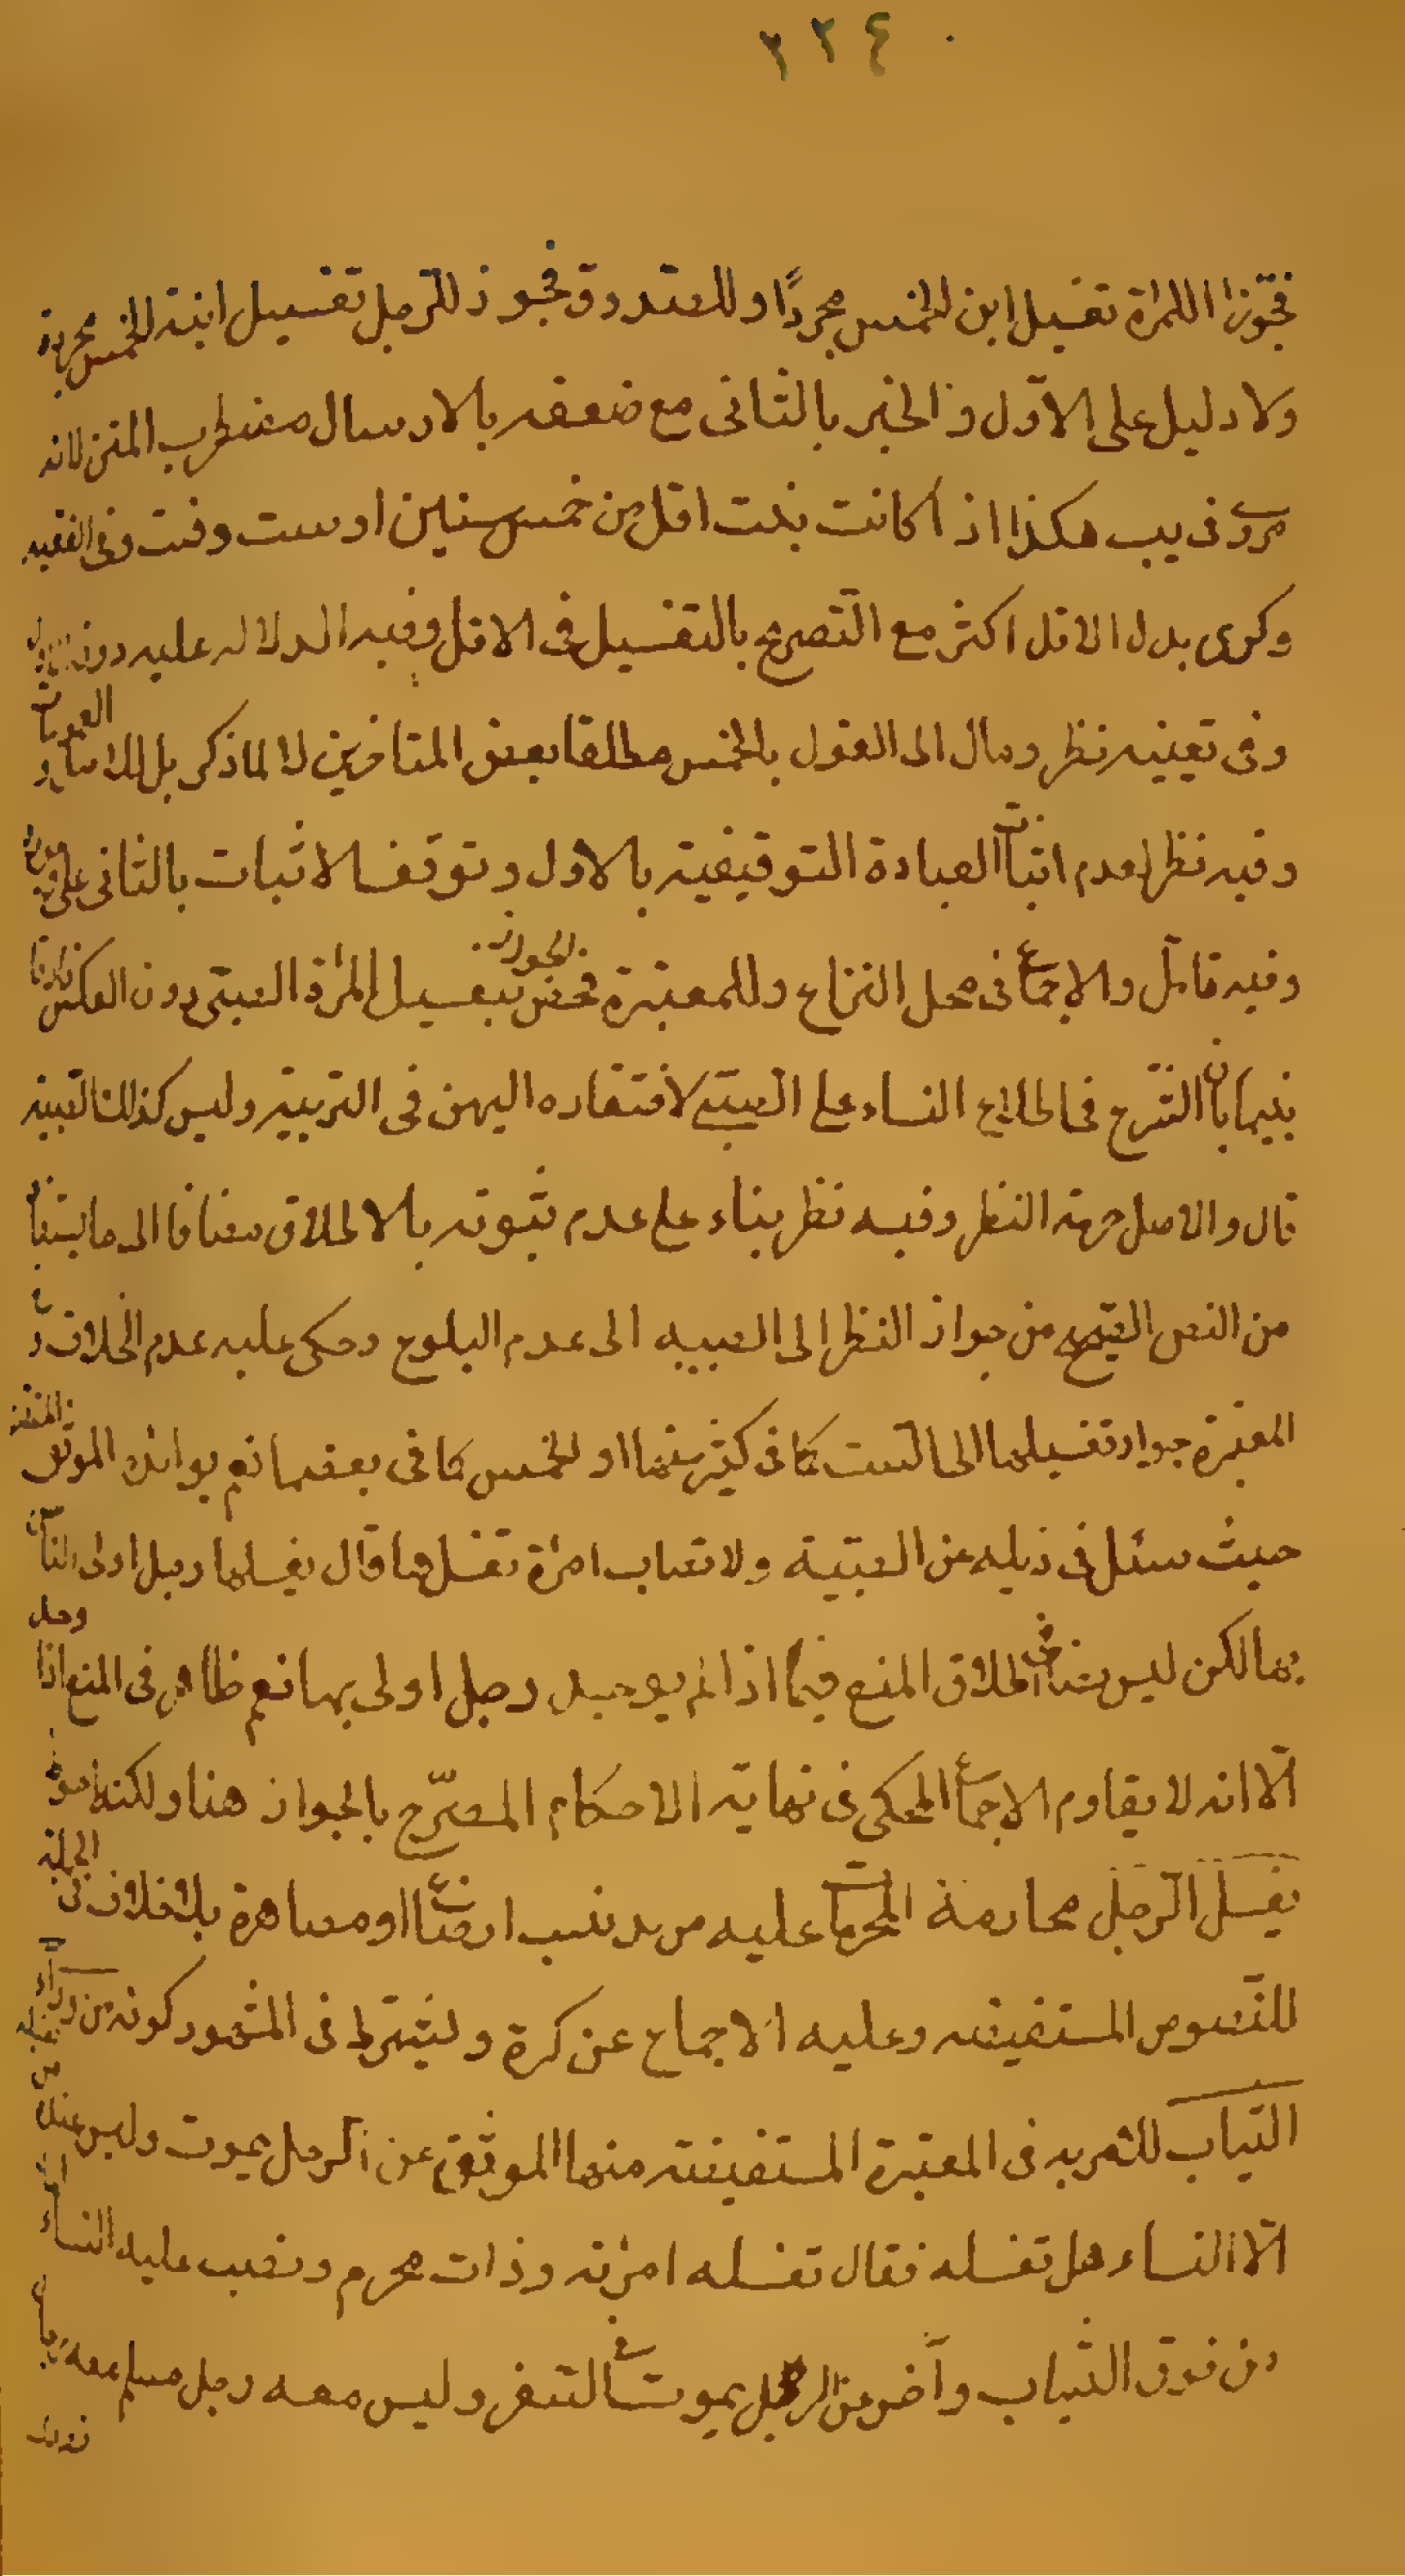 ٢٢٤
فجوزا للمرأة تغسيل ابن الخمس مجردًا وللصدوق فجوز للرجل تغسيل ابنة الخمس مجردة
ولا دليل على الاوّل والخبر بالثاني مع ضعفه بالارسال مضطرب المتن لانه
مروى فى يب هكذا اذا كانت بنت اقل من خمس سنين او ست دفنت وفى الفقيه
وكرى بدل الاقل اكثر مع التصريح بالتغسيل فى الاقل وفيه الدلاله عليه دون
وفى تعيينه نظر ومال الى القول بالخمس مطلقا بعض المتاخرين لا لما ذكر بل للاصل و العمومات
وفيه نظر لعدم اثبات العبادة التوقيفية بالاول وتوقف الاثبات بالثانى على
وفيه تامل والاجماع فى محل النزاع وللمعتبرة فخص الجواز بتغسيل المرأة الصبى دون العكس فارقا
بينهما بان الشرع فى اطلاع النساء على الصبى لافتقاره اليهن فى التربية وليس كذلك الصبية
قال والاصل حرمة النظر وفيه نظر بناء على عدم ثبوته بالاطلاق مضافا الى ما يستفاد
من النص الصحيح من جواز النظر الى الصبيه الى عدم البلوغ وحكى عليه عدم الخلاف و فى
المعتبرة جواز تغسيلها الى الست كما فى كثير منها او الخمس كما فى بعضها نعم يوافقه الموثق المتقدم
حيث سئل فى ذيله عن الصبية ولا تصاب امرأة تغسلها قال يغسلها رجل اولى الناس
بها لكن ليس نصا فى اطلاق المنع فيما اذا لم يوجد رجل اولى بها نعم ظاهر فى المنع اذا وجد
الّا انه لا يقاوم الاجماع المحكى فى نهاية الاحكام المصرّح بالجواز هنا ولكنه احوط
يغسل الرجل محارمه المحرمات عليه مؤبدا بنسب او رضاع او مصاهرة بلا خلاف فى الجملة
للنصوص المستفيضه وعليه الاجماع عن كرة ويشترط فى المشهور كونه من وراء
الثياب للامر به فى المعتبرة المستفيضه منها الموثق عن الرجل يموت وليس عنده من يغسله
الّا النساء هل تغسله فقال تغسله امرأته وذات محرم وتصب عليه النساء الماء
من فوق الثياب وآخر عن الرجل يموت فى السفر وليس معه رجل مسلم ومعه رجال